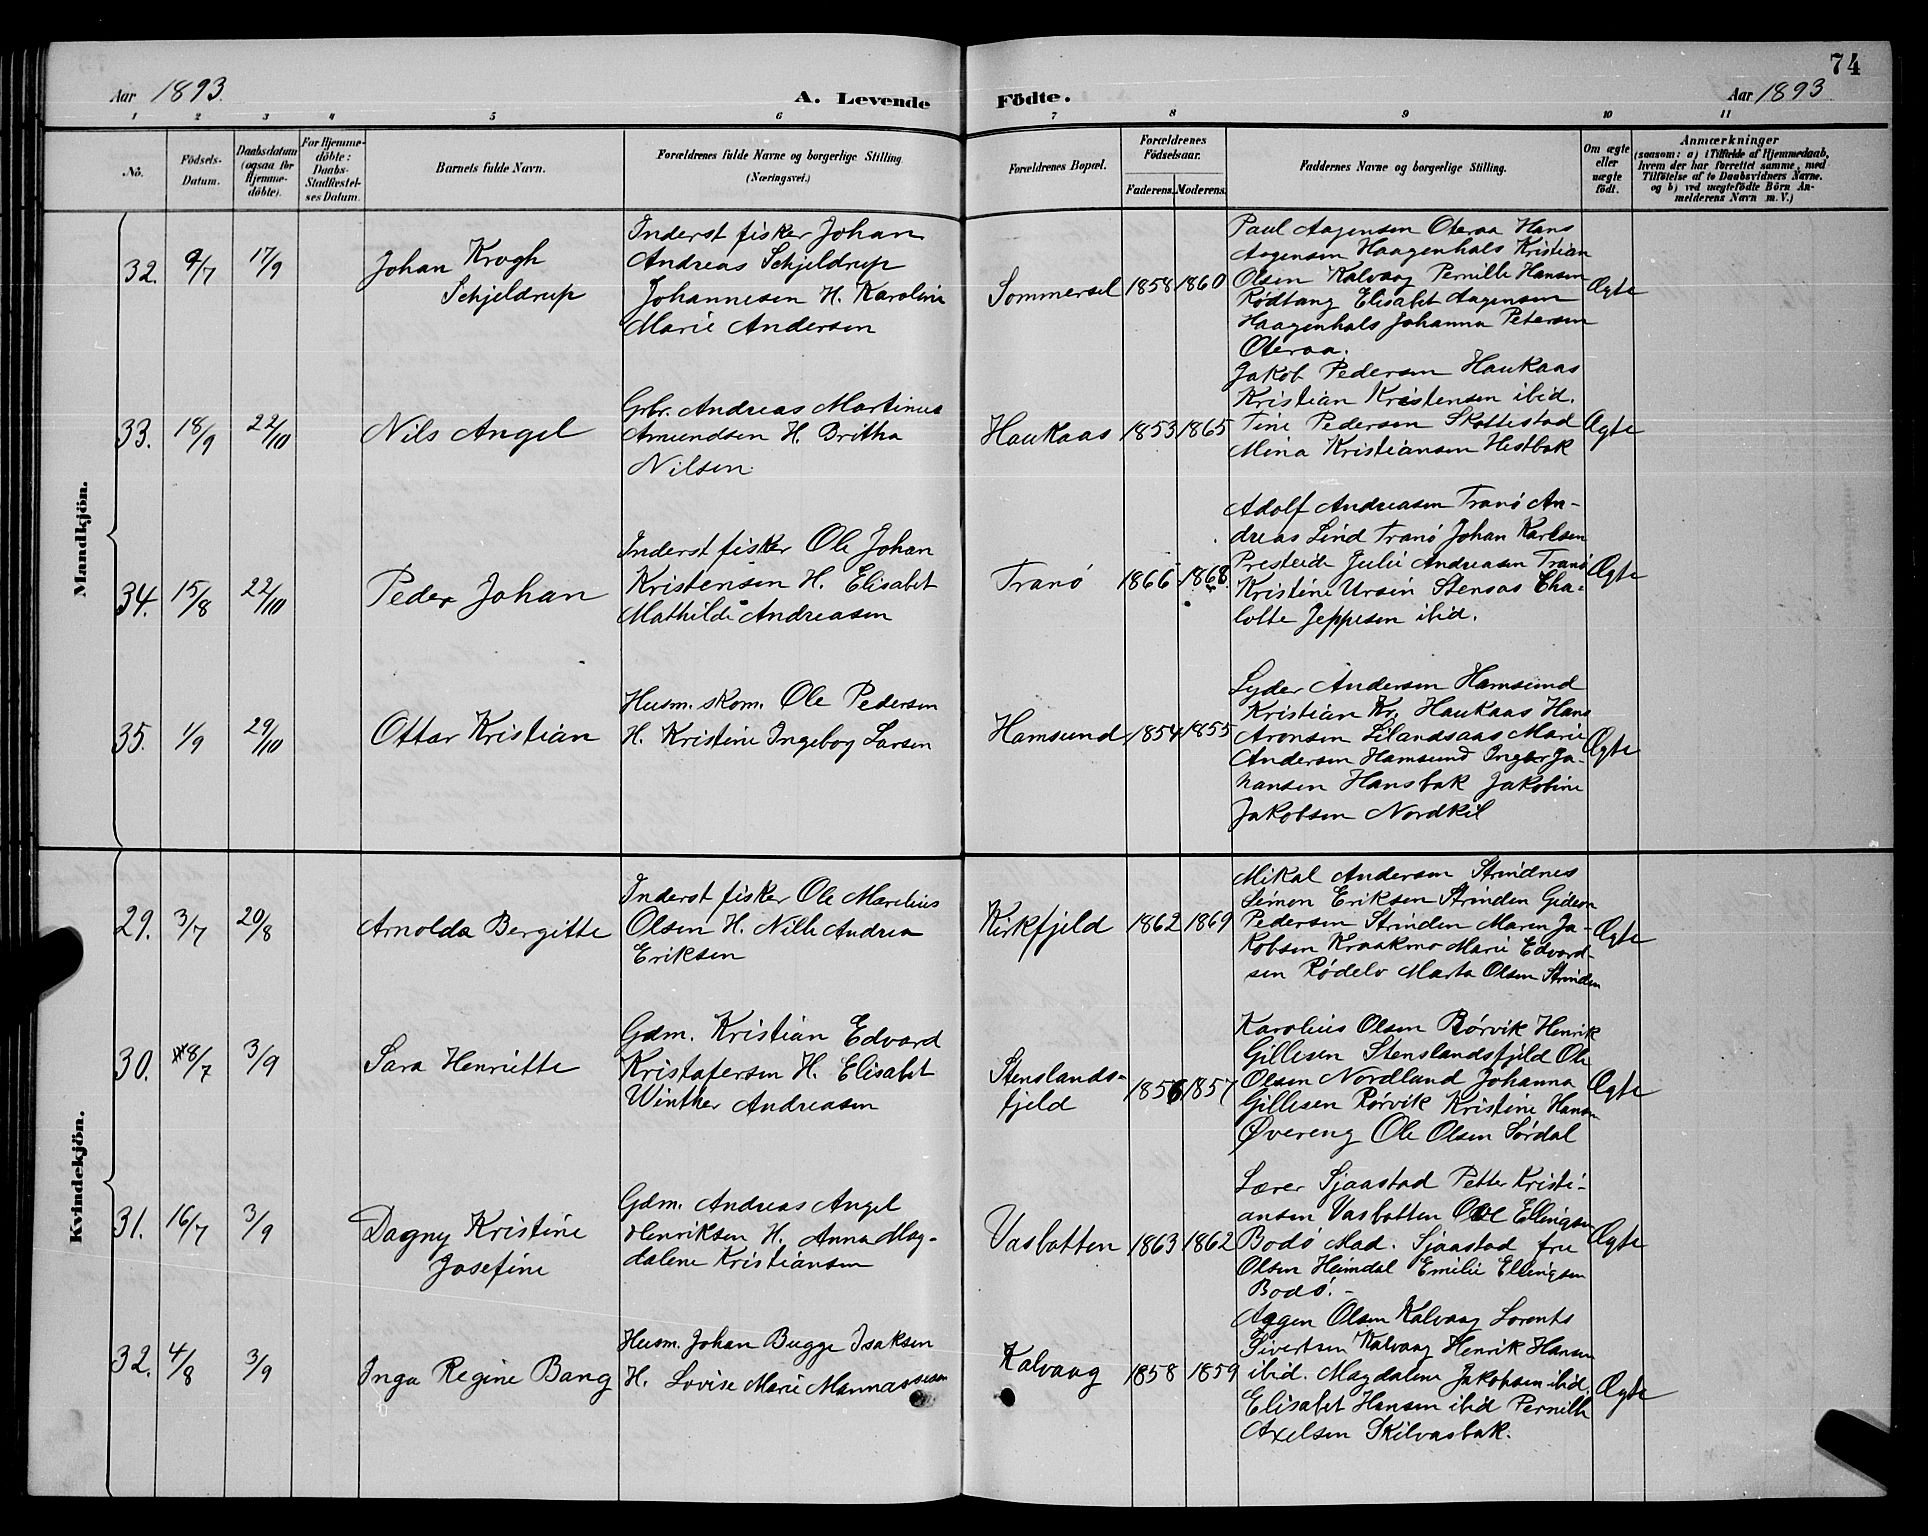 74
Aar 1893.
A. Levende
Födte.
Aar 1893
1 2 3 4 5 6 7 8 9 10 11
No.
Födsels-
Datum.
Daabsdatum
(ogsaa for
Hjemme-
döbte).
For Hjemme-
döbte:
Daabs-
Stadfæstel-
ses Datum.
Barnets fulde Navn.
Forældrenes fulde Navne og borgerlige Stilling
(Næringsvei.)
Forældrenes Bopæl.
Forældrenes
Födselsaar.
Faderens. Moderens.
Faddernes Navne og borgerlige Stilling.
Om ægte
eller
uægte
født.
Anmærkninger
(saasom: a) i Tilfælde af Hjemmedaab,
hvem der har forrettet samme, med
Tilföielse af to Daabsvidners Navne.
og b) ved uægtefödte Börn An-
melderens Navn m. V.)
Mandkjön.
32. 9/7 17/9
Johan Krogh
Schjeldrup
Inderst fisker Johan
Andreas Schjeldrup
Johannesen H. Karoline
Marie Andersen
Sommersel 1858 1860
Paul Aagensen Oteraa Hans
Aagensen Haagenhals Kristian
Olsen Kalvaag Pernille Hansen
Rødtang Elisabet Aagensen
Haagenhals Johanna Petersen
Oteraa.
Ægte
33. 18/9 22/10
Nils Angel
Gbr. Andreas Martinus
Amundsen H. Britha
Nilsen
Haukaas 1853 1865
Jakob Pedersen Haukaas
Kristian Kristensen ibid.
Tine Pedersen Skottestad
Mina Kristiansen Hestbak
Ægte
34. 15/8 22/10
Peder Johan
Inderst fisker Ole Johan
Kristensen H. Elisabet
Mathilde Andreasen
Tranö 1866 1868.
Adolf Andreasen Tranö An-
dreas Lind Tranö Johan Karlsen
Presteide Julie Andreasen Tranö
Kristine Ursin Stensas Cha-
lotte Jeppesen ibid.
Ægte
35. 1/9 29/10
Ottar Kristian
Husm. skom. Ole Pedersen
H. Kristine Ingebog Larsen
Hamsund 1854 1855
Lyder Andersen Hamsund
Kristian Kr. Haukaas Hans
Aronsen Lilandsaas Marie
Andersen Hamsund Ingbr Jo-
hansen Hansbak Jakobine
Jakobsen Nordkil
Ægte
Kvindekjön.
29. 3/7 20/8
Arnolda Bergitte
Inderst fisker Ole Marelius
Olsen H. Nille Andrea
Eriksen
Kirkfjeld 1862 1869
Mikal Andersen Strindnes
Simon Eriksen Strinden Gideon
Pedersen Strinden Maren Ja-
kobsen Kraakmo Marie Edvard-
sen Rödelv Marta Olsen Strinden
Ægte
30. 8/7 3/9
Sara Henriette
Gdm. Kristian Edvard
Kristofersen H. Elisabet
Winther Andreasen
Stenslands-
fjeld
1856 1857
Karolius Olsen Rörvik Henrik
Gillesen Stenslandsfjeld Ole
Olsen Nordland Johanna
Gillesen Rörvik Kristine Hansen
Øvereng Ole Olsen Sørdal
Ægte
31. 16/7 3/9
Dagny Kristine
Josefine
Gdm. Andreas Angel
Henriksen H. Anna Mag-
dalene Kristiansen
Vasbotten 1863 1862
Lærer Sjaastad Petter Kristi-
ansen Vasbotten Ole Ellingsen
Bodö Mad. Sjaastad fru
Olsen Heimdal Emilie Ellingsen
Bodö.
Ægte
32. 4/8 3/9
Inga Regine Bang
Husm. Johan Bugge Isaksen
H. Lovise Marie Mannassesen
Kalvaag 1858 1859
Aagen Olsen Kalvaag Lorents
Sivertsen Kalvaag Henrik Hansen
ibid. Magdalene Jakobsen ibid.
Elisabet Hansen ibid Pernille
Axelsen Skilvasbak.
Ægte